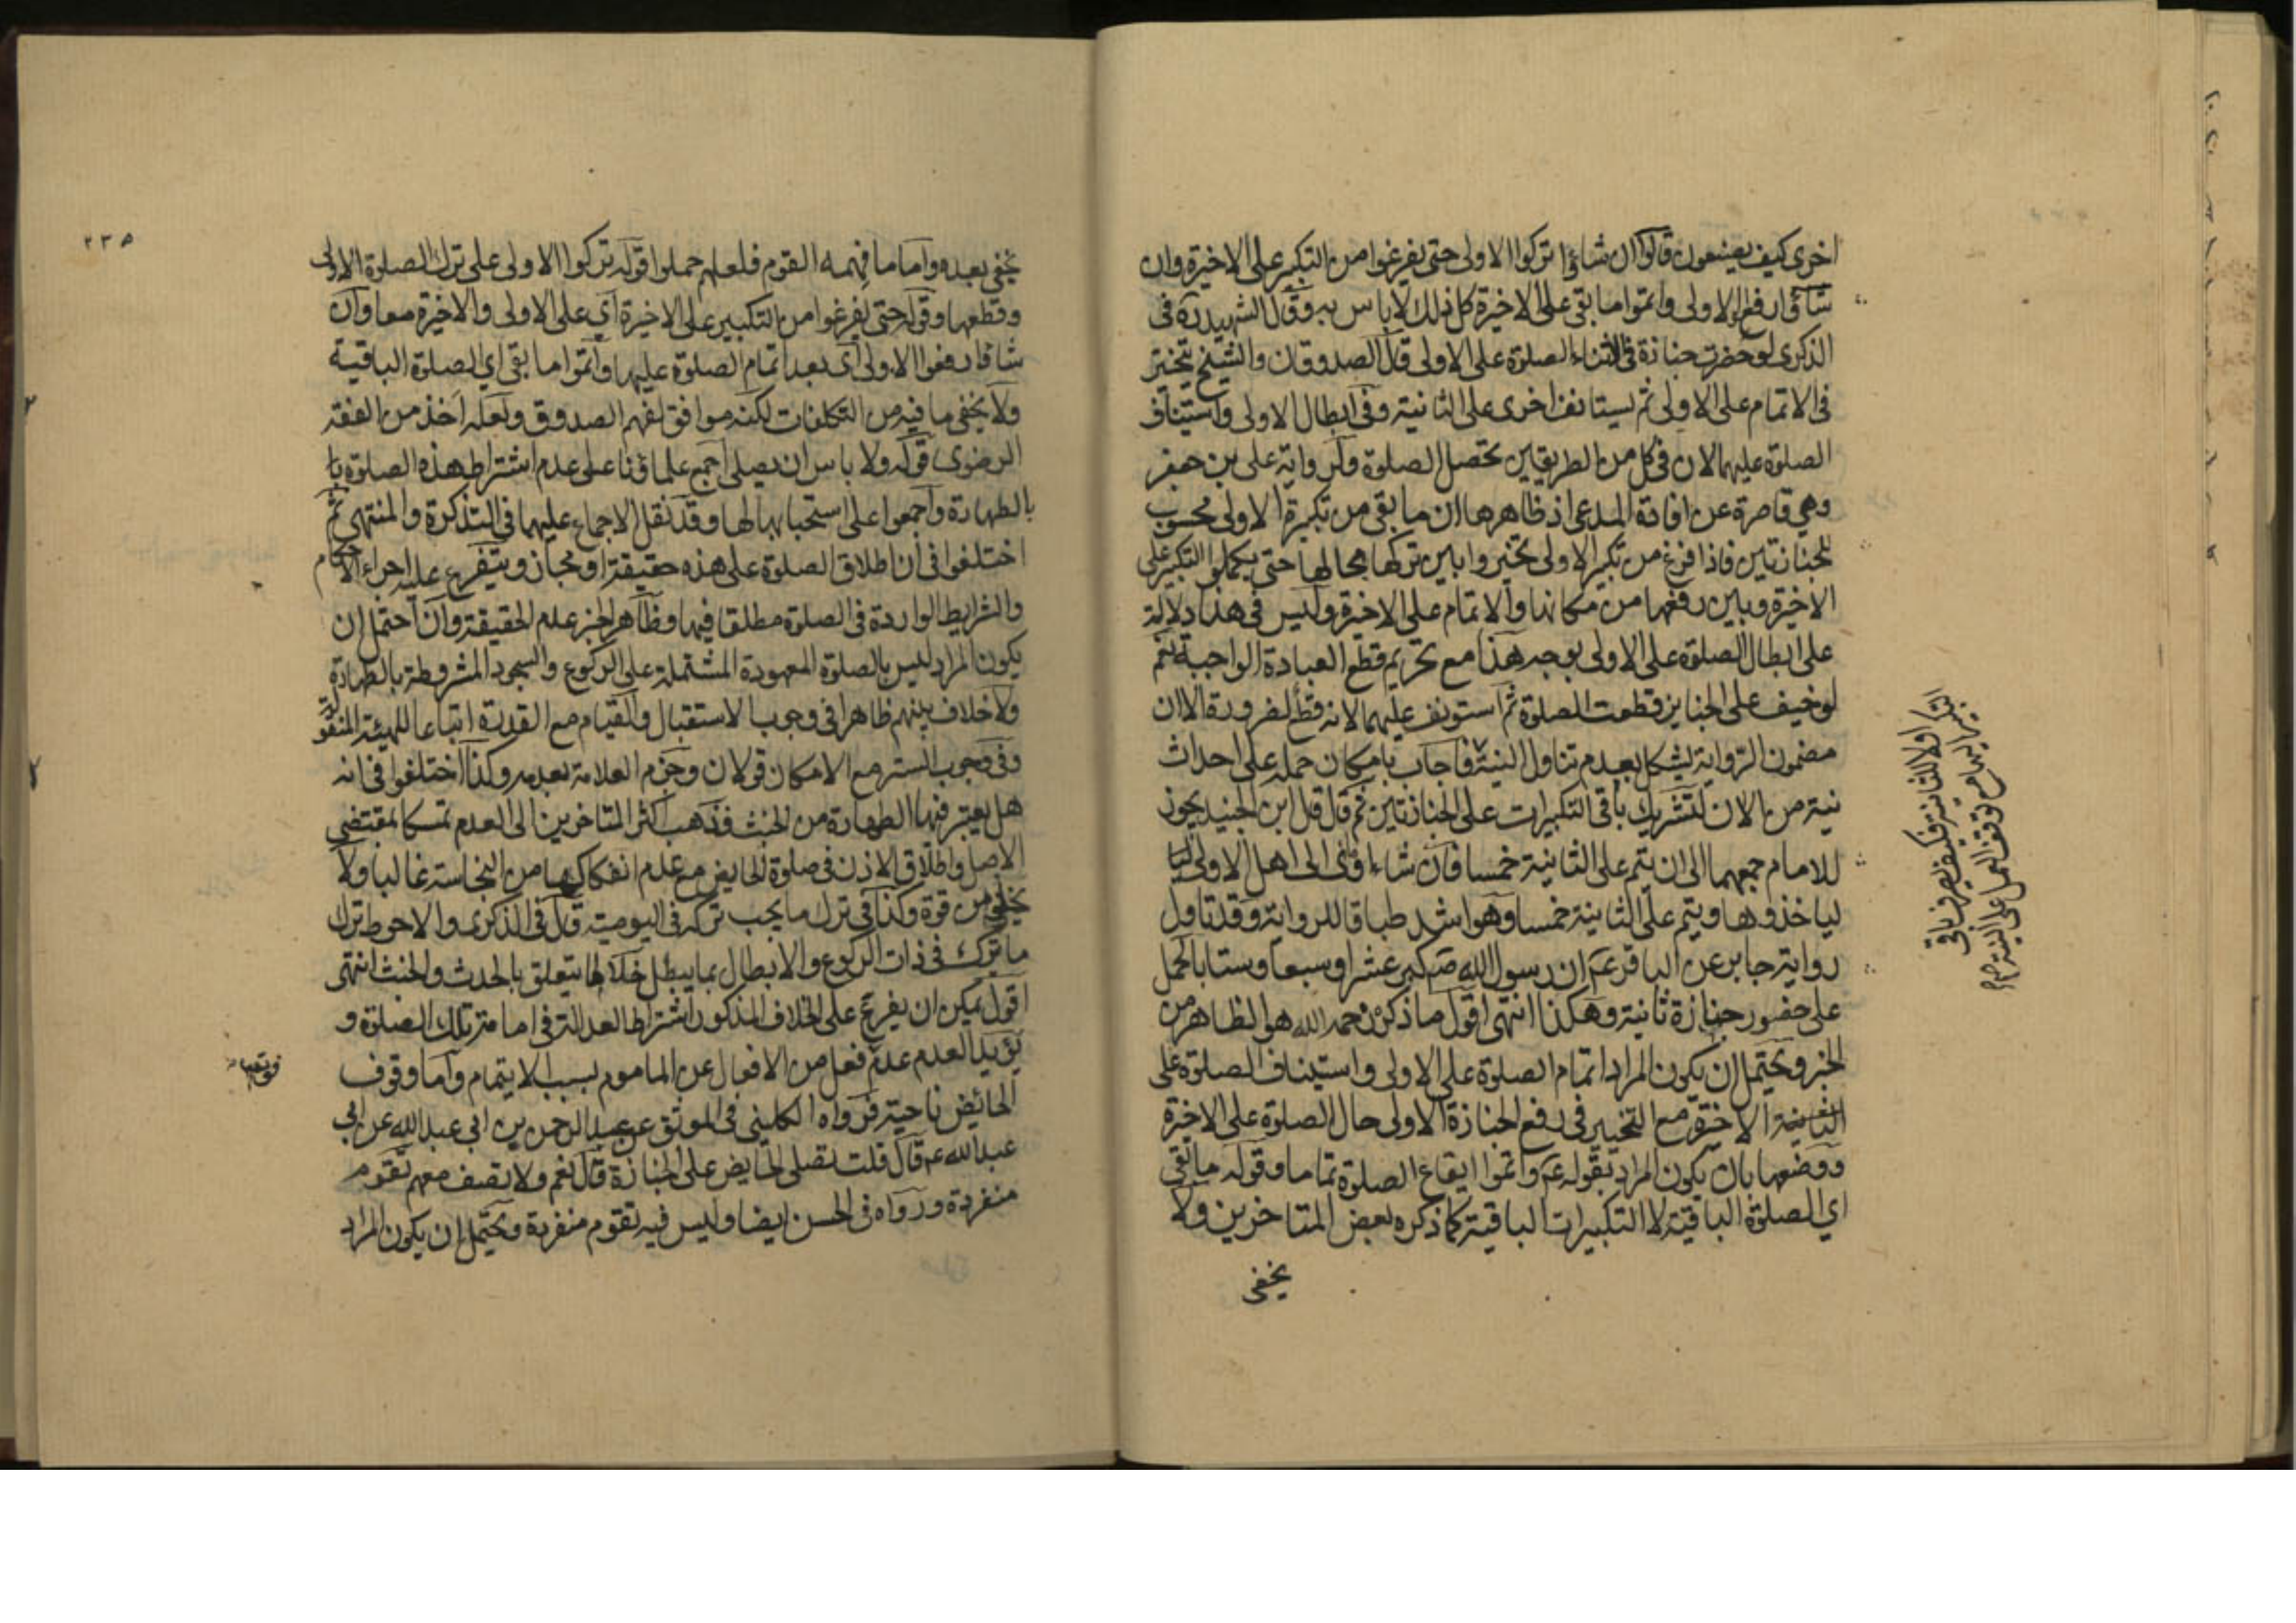 اخرى كيف يصنعون قالوا ان شاؤا تركوا الاولى حتى يفرغوا من التكبير على الاخيرة وان
شاؤا رفعوا الاولى واتموا ما بقى على الاخيرة كل ذلك لا باس به وقال الشهيد ره فى
الذكرى لو حضرت جنازة فى اثناء الصلوة على الاولى قال الصدوقان والشيخ يتخير
فى الاتمام على الاولى ثم يستانف اخرى على الثانية وفى ابطال الاولى واستيناف
الصلوة عليهما لان فى كل من الطريقين تحصل الصلوة ولرواية على بن جعفر
وهي قاصرة عن افادة المدعى اذ ظاهرها ان ما بقى من تكبيرة الاولى محسوب
للجنازتين فاذا فرغ من تكبير الاولى تخيروا بين تركها بحالها حتى يكملوا التكبير على
الاخيرة وبين رفعها من مكانها والاتمام على الاخيرة وليس فى هذا دلالة
على ابطال الصلوة على الاولى بوجه هذا مع تحريم قطع العبادة الواجبة نعم
لو خيف على الجنايز قطعت الصلوة ثم استونف عليهما لانه قطع لضرورة الا ان
مضمون الرواية يشكل بعدم تناول النية فاجاب بامكان حمله على احداث
نية من الان لتشريك باقى التكبيرات على الجنازتين ثم قال قال ابن الجنيد يجوز
للامام جمعهما الى ان يتم على الثانية خمسا فان شاء اومى الى اهل الاولى
لياخذوها ويتم على الثانية خمسا وهو اشد طباقا للرواية وقد تاول
رواية جابر عن الباقر عم ان رسول الله ص كبر عشرا وسبعا وستا بالحمل
على حضور جنازة ثانية وهكذا انتهى اقول ما ذكره رحمه الله هو الظاهر من
الخبر ويحتمل ان يكون المراد اتمام الصلوة على الاولى واستيناف الصلوة على
الثانية الاخيرة مع التخيير فى رفع الجنازة الاولى حال الصلوة على الاخيرة
ووضعها بان يكون المراد بقوله عم واتموا ايقاع الصلوة تماما وقوله ما بقى
اي الصلوة الباقية لا التكبيرات الباقية كما ذكره بعض المتاخرين ولا
يخفى
التكبير اولا للثانية فكيف يصرف باقى
التكبير اليها مع توقف العمل على النية
٢٣٥
يخفى بعده واما ما فهمه القوم فلعلهم حملوا قوله تركوا الاولى على ترك الصلوة الاولى
وقطعها وقوله حتى يفرغوا من التكبير على الاخيرة اي على الاولى والاخيرة معا وان
شاؤا رفعوا الاولى اى بعد اتمام الصلوة عليها واتموا ما بقى اي الصلوة الباقية
ولا يخفى ما فيه من التكلفات لكنه موافق لفهم الصدوق ولعله اخذ من الفقه
الرضوى قوله ولا باس ان يصلى اجمع علماؤنا على عدم اشتراط هذه الصلوة با
بالطهارة واجمعوا على استحبابها لها وقد نقل الاجماع عليهما فى التذكرة والمنتهى ثم
اختلفوا فى ان اطلاق الصلوة على هذه حقيقة او مجاز ويتفرع عليه اجراء الاحكام
والشرايط الواردة فى الصلوة مطلقا فيها وظاهر الخبر عدم الحقيقة وان احتمل ان
يكون المراد ليس بالصلوة المعهودة المشتملة على الركوع والسجود المشروطة بالطهارة
ولا خلاف بينهم ظاهرا فى وجوب الاستقبال والقيام مع القدرة اتباعا للهيئة المنقولة
وفى وجوب الستر مع الامكان قولان وجزم العلامة بعدمه وكذا اختلفوا فى انه
هل يعتبر فيها الطهارة من الخبث فذهب اكثر المتاخرين الى العدم تمسكا بمقتضى
الاصل واطلاق الاذن فى صلوة الحايض مع عدم انفكاكها من النجاسة غالبا ولا
يخلو من قوة وكذا فى ترك ما يجب تركه فى اليومية قال فى الذكرى والاحوط ترك
ما يترك فى ذات الركوع والابطال بما يبطل خلا ما يتعلق بالحدث والخبث انتهى
اقول يمكن ان يفرع على الخلاف المذكور اشتراط العدالة فى امامة تلك الصلوة و
يؤيد العدم عدم فعل من الافعال عن الماموم بسبب الايتمام واما وقوف
الحائض ناحية فرواه الكلينى فى الموثق عن عبد الرحمن بن ابى عبد الله عن ابى
عبد الله عم قال قلت تصلى الحايض على الجنازة قال نعم ولا تصف معهم تقوم
منفردة ورواه فى الحسن ايضا وليس فيه تقوم منفردة ويحتمل ان يكون المراد